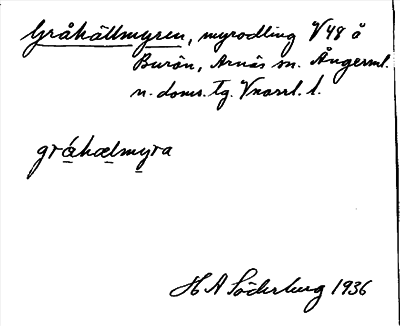 Gråhällmyren, myrodling V48 å
Burön, Arnäs sn. Ångerml.
n. doms. tg. Vnorrl. l.
gråhælmyra
H A Söderberg 1936